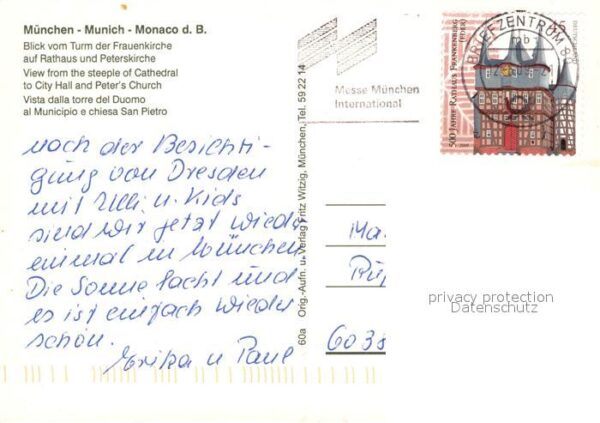 München - Munich - Monaco d. B.
Blick vom Turm der Frauenkirche
auf Rathaus und Peterskirche
View from the steeple of Cathedral
to City Hall and Peter's Church
Vista dalla torre del Duomo
al Municipio e chiesa San Pietro
nach der Besichti-
gung von Dresden
mit Ulli u. Kids
sind wir jetzt wieder
einmal in München
Die Sonne lacht und
es ist einfach wieder
schön.
Erika u Paul
60a Orig.-Aufn. u. Verlag Fritz Witzig, München, Tel. 59 22 14
Messe München
International
500 JAHRE RATHAUS FRANKENBERG
(EDER)
BRIEFZENTRUM 80
mb
Ma.
Rup
603
privacy protection
Datenschutz